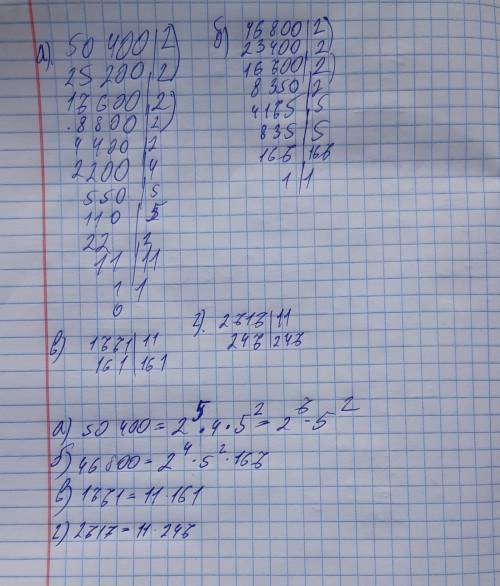 а). 50 400 | 2
25 200 | 2
17600 | 2
8800 | 2
4400 | 2
2200 | 4
550 | 5
110 | 5
22 | 2
11 | 11
1 | 1
0
б) 46800 | 2
23400 | 2
16700 | 2
8350 | 2
4175 | 5
835 | 5
167 | 167
1 | 1
в) 1771 | 11
161 | 161
г). 2717 | 11
247 | 247
а) 50 400 = 2⁵ · 4 · 5² = 2⁷ · 5²
б) 46800 = 2⁴ · 5² · 167
в) 1771 = 11 · 161
г) 2717 = 11 · 247